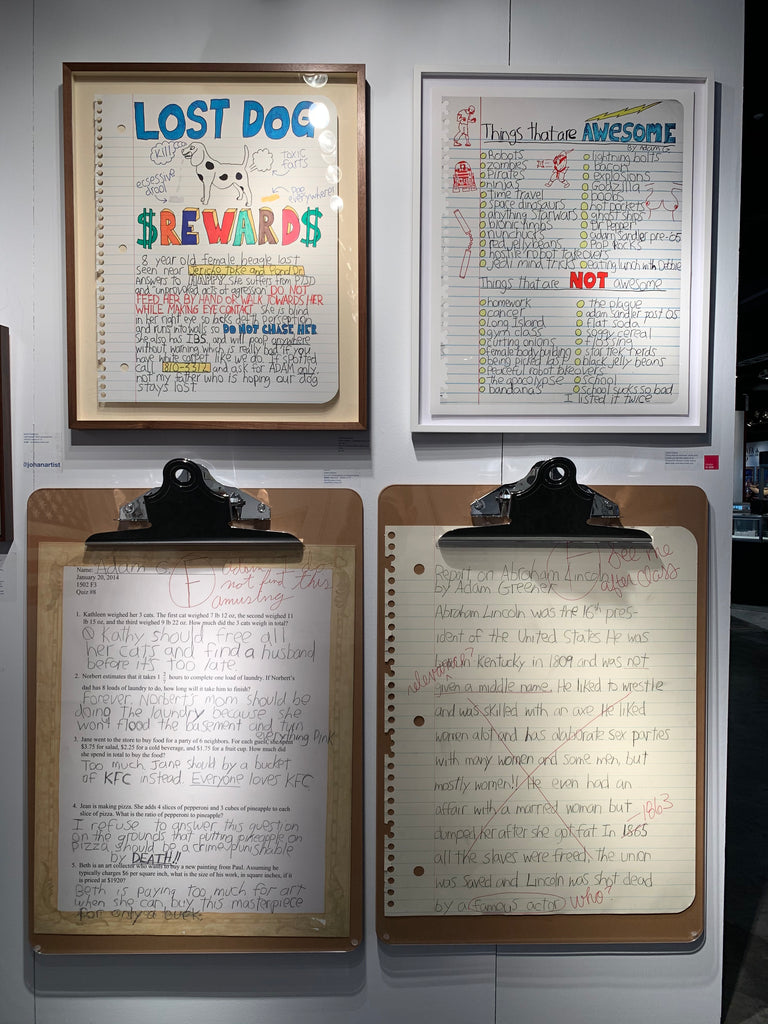 LOST DOG
Kill
toxic
farts
excessive
drool
poo
everywhere!
$REWARD$
8 year old female beagle last
seen near Jericho Tpke and Pond Dr.
Answers to She suffers from PTSD
and unprovoked acts of aggression DO NOT
FEED HER BY HAND OR WALK TOWARDS HER
WHILE MAKING EYE CONTACT. She is blind
in her right eye so lacks depth perception
and runs into walls so DO NOT CHASE HER
She also has IBS, and will poop anywhere
without warning which is really bad if you
have white carpet like we do. If spotted
call 810-3312 and ask for ADAM only,
not my father who is hoping our dog
stays lost.
Things that are AWESOME
by Adam G.
Robots
zombies
Pirates
ninjas
time travel
space dinosaurs
anything Star Wars
bionic limbs
nunchucks
red jelly beans
hostile robot takeovers
Jedi mind tricks
lightning bolts
bacon
explosions
Godzilla
boobs
hot pockets
ghost ships
Dr Pepper
adam sandler pre-05
Pop Rocks
eating lunch with Debbie
Things that are NOT awesome
homework
cancer
Long Island
gym class
cutting onions
female body building
being picked last
Peaceful robot takeovers
the apocalypse
bandana's
the plague
adam sandler post 05
flat soda
soggy cereal
flossing
star trek nerds
black jelly beans
school
school sucks so bad
I listed it twice
@johanartist
Name: Adam G.
January 20, 2014
1502 F3
Quiz #8
F
not find this
amusing
1. Kathleen weighed her 3 cats. The first cat weighed 7 lb 12 oz, the second weighed 11
lb 15 oz, and the third weighed 9 lb 22 oz. How much did the 3 cats weigh in total?
Kathy should free all
her cats and find a husband
before it's too late.
2. Norbert estimates that it takes 1 1/2 hours to complete one load of laundry. If Norbert's
dad has 8 loads of laundry to do, how long will it take him to finish?
Forever. Norbert's mom should be
doing the laundry because she
won't flood the basement and turn
everything pink
3. Jane went to the store to buy food for a party of 6 neighbors. For each guest, she spent
$3.75 for salad, $2.25 for a cold beverage, and $1.75 for a fruit cup. How much did
she spend in total to buy the food?
Too much. Jane should by a bucket
of KFC instead. Everyone loves KFC.
4. Jean is making pizza. She adds 4 slices of pepperoni and 3 cubes of pineapple to each
slice of pizza. What is the ratio of pepperoni to pineapple?
I refuse to answer this question
on the grounds that putting pineapple on
pizza should be a crime punishable
by DEATH!!
5. Beth is an art collector who wants to buy a new painting from Paul. Assuming he
typically charges $6 per square inch, what is the size of his work, in square inches, if it
is priced at $1920?
Beth is paying too much for art
when she can buy this masterpiece
for only a buck.
F See me
after class
Report on Abraham Lincoln
by Adam Greener
Abraham Lincoln was the 16th pres-
ident of the United States. He was
born in Kentucky in 1809 and was not
relevance?
given a middle name. He liked to wrestle
and was skilled with an axe. He liked
women alot and has elaborate sex parties
with many women and some men, but
mostly women!! He even had an
affair with a marred woman but
dumped her after she got fat. In 1865
1863
all the slaves were freed, the union
was saved and Lincoln was shot dead
by a famous actor who?